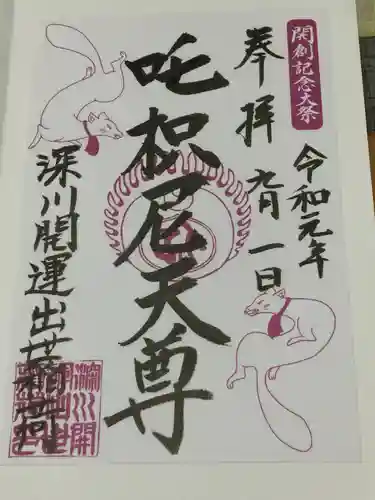 開創記念大祭
奉拝
令和元年
九月一日
吒枳尼天尊
深川開運出世稲荷